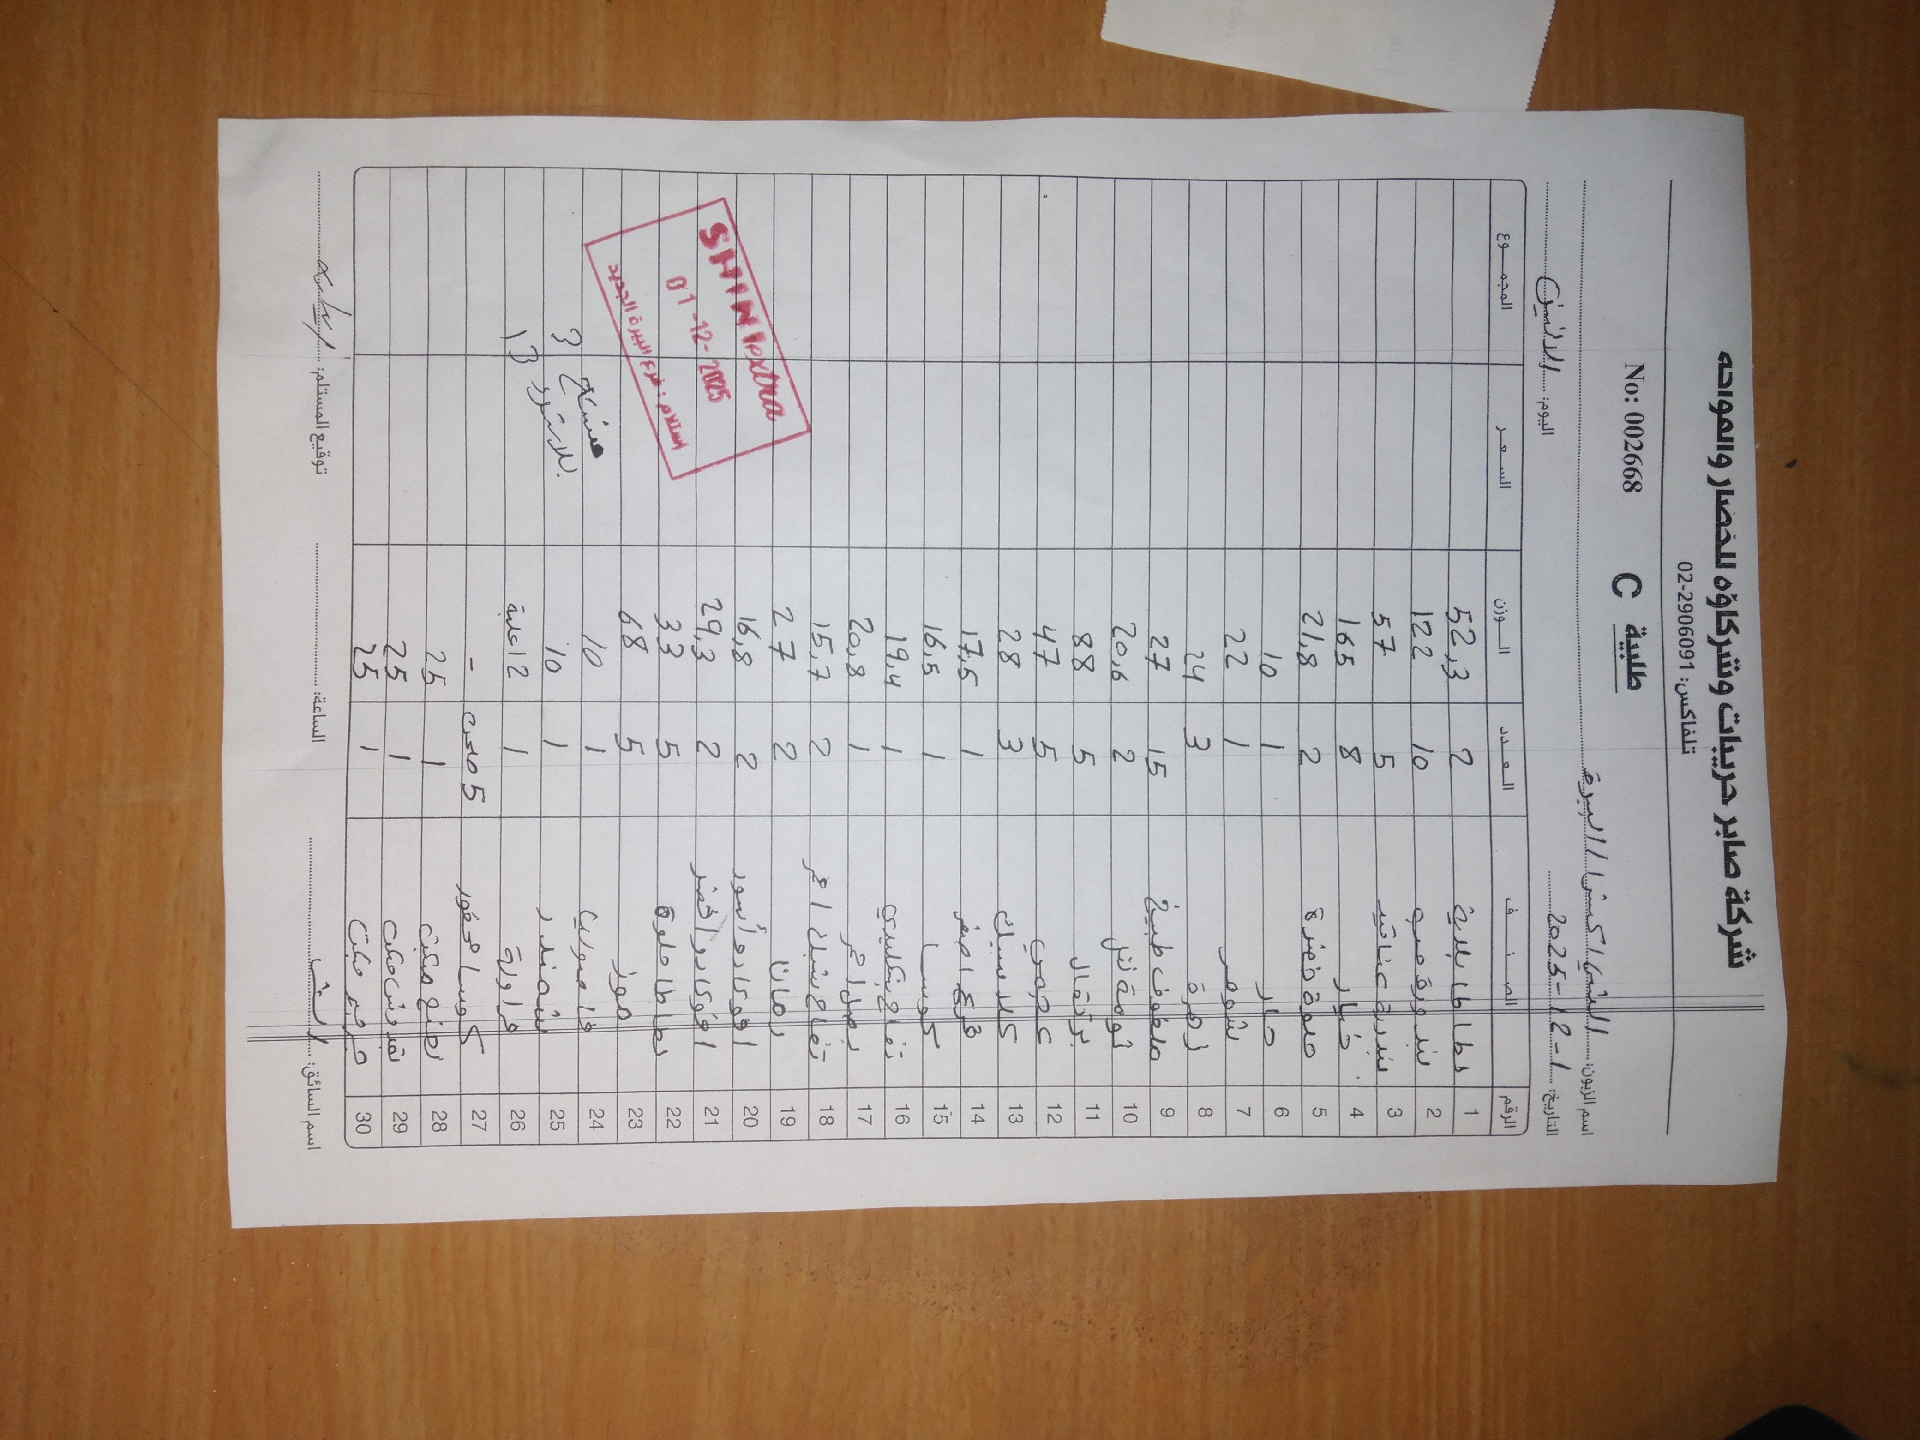 شركة صابر حريبات وشركاؤه للخضار والفواكه
تلفاكس: 02-2906091
No: 002668 C طلبية
اسم الزبون: الشني اكسترا / البيرة
التاريخ: 2025-12-1 اليوم: الاثنين
الرقم الصنف العدد الوزن السعر المجموع
1 بطاطا بلدية 2 52,3
2 بندورة 10 122
3 بندورة عناقيد 5 57
4 خيار 8 165
5 ملوخية 2 21,8
6 حار 1 10
7 شومر 1 22
8 زهرة 3 24
9 ملفوف طبيخ 15 27
10 2 20,6
11 برتقال 5 88
12 5 47
13 كلاسيك 3 28
14 قرع اصفر 1 17,5
15 كوسا 1 16,5
16 1 19,4
17 بصل احمر 1 20,8
18 تفاح احمر 2 15,7
19 رمان 2 27
20 افوكادو أسود 2 16,8
21 افوكادو اخضر 2 29,3
22 بطاطا حلوة 5 33
23 موز 5 68
24 1 10
25 شمندر 1 10
26 فراولة 1 12 علبة
27 كوسا محفور 5 صحن -
28 نعنع 1 25
29 بقدونس 1 25
30 جرجير 1 25
SHINI extra
01-12-2025
استلام: فرع البيرة الجديد
3
13
اسم السائق: الساعة: توقيع المستلم: